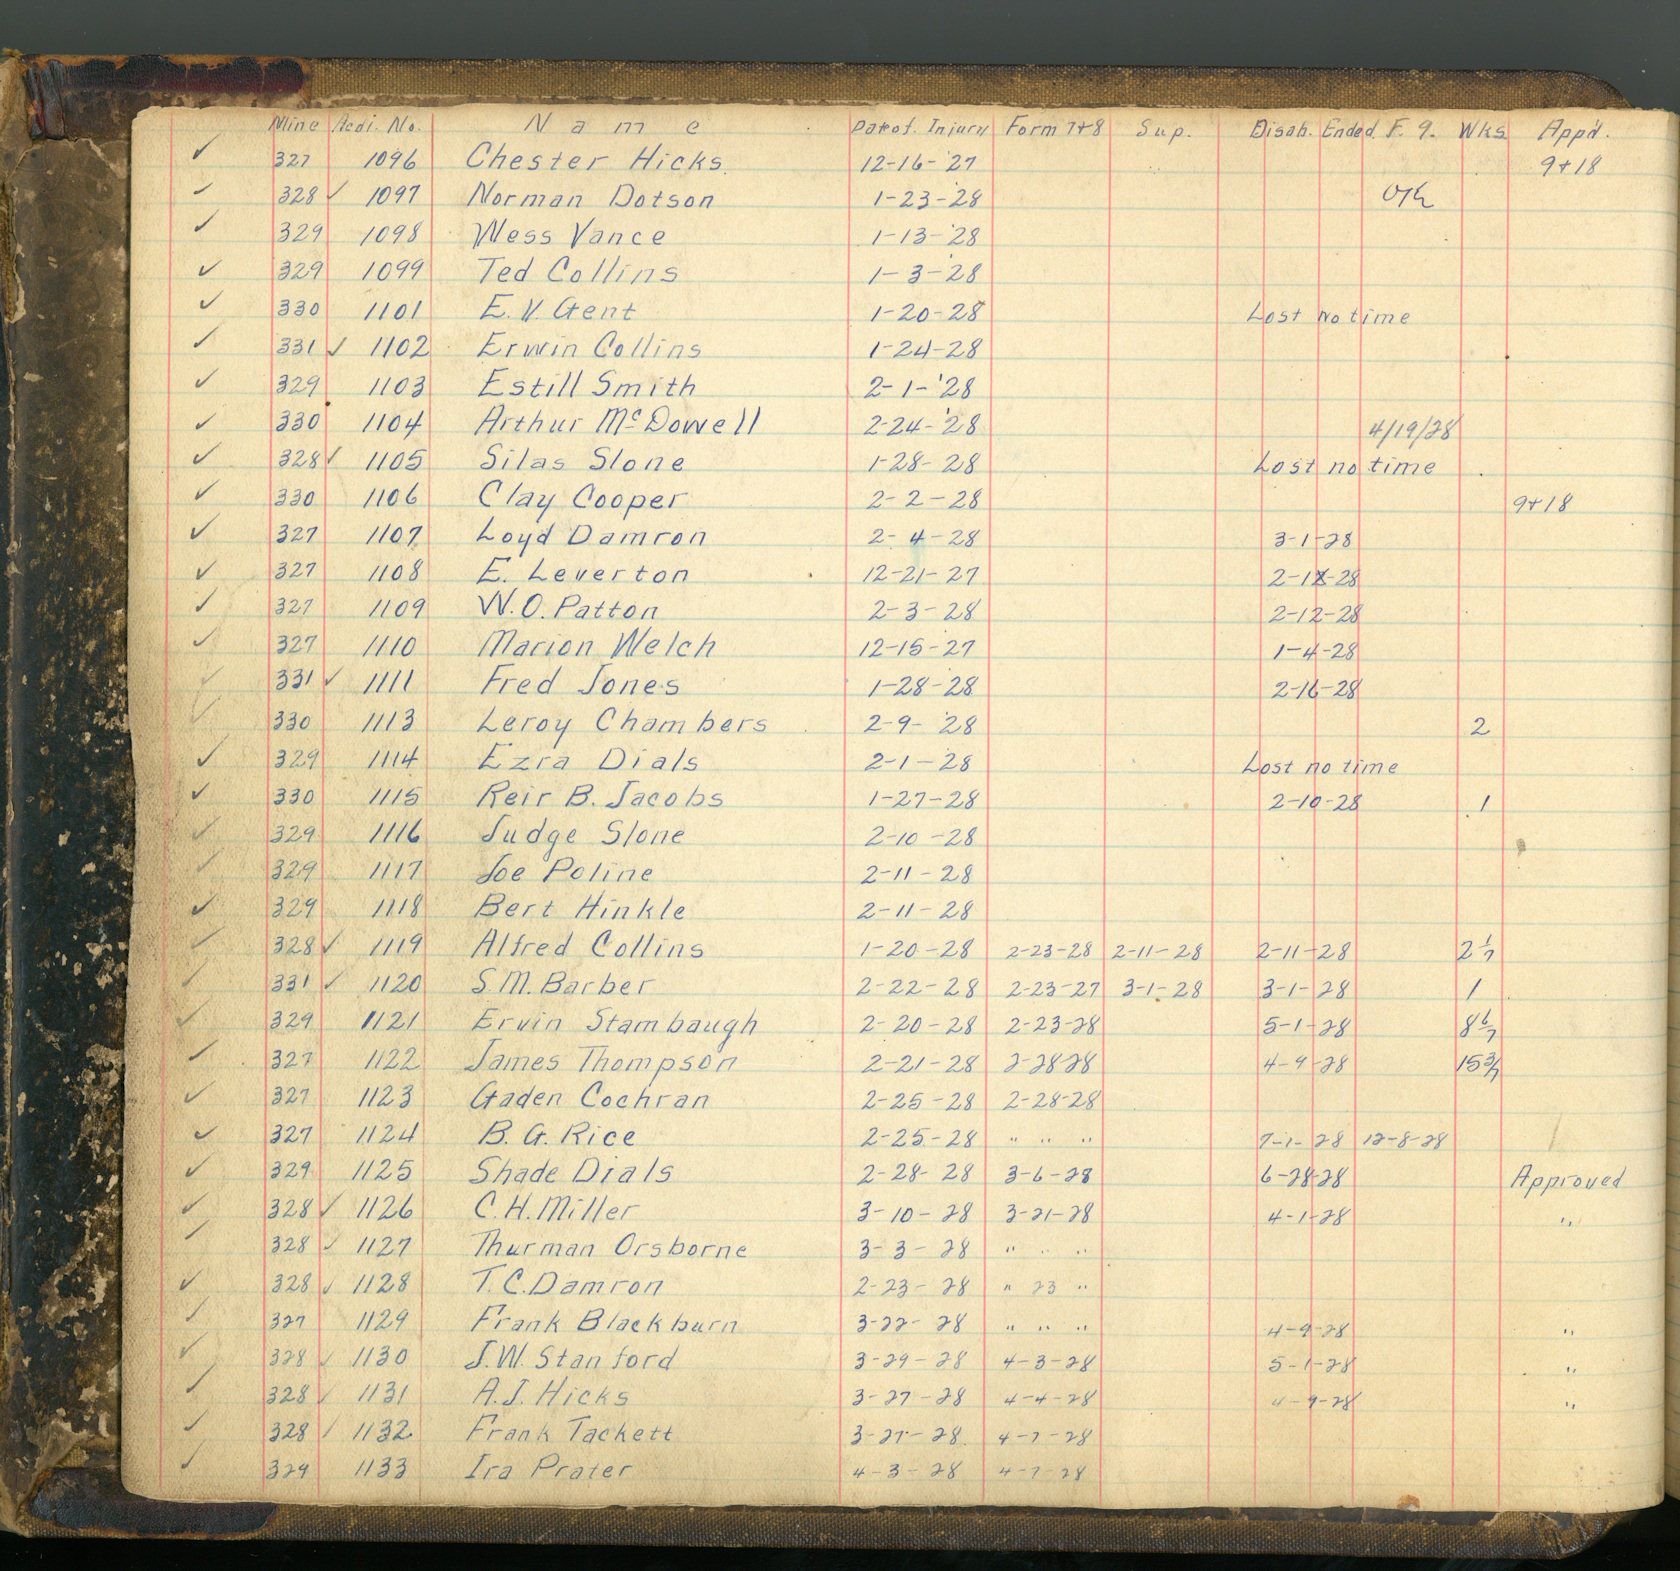 Mine Acdi. No. Name Dateof. Injury Form 7+8 Sup. Disab. Ended F. 9. Wks App'd.
✓ 327 1096 Chester Hicks. 12-16-'27 9+18
✓ 328 ✓ 1097 Norman Dotson 1-23-'28
✓ 329 1098 Wess Vance 1-13-'28
✓ 329 1099 Ted Collins 1-3-'28
✓ 330 1101 E.V. Gent 1-20-28 Lost No time
✓ 331 ✓ 1102 Erwin Collins 1-24-28
✓ 329 1103 Estill Smith 2-1-'28
✓ 330 1104 Arthur McDowell 2-24-'28 4/19/28
✓ 328 ✓ 1105 Silas Slone 1-28-28 Lost no time
✓ 330 1106 Clay Cooper 2-2-28 9+18
✓ 327 1107 Loyd Damron 2-4-28 3-1-28
✓ 327 1108 E. Leverton 12-21-27 2-12-28
✓ 327 1109 W.O. Patton 2-3-28 2-12-28
✓ 327 1110 Marion Welch 12-15-27 1-4-28
✓ 331 ✓ 1111 Fred Jones 1-28-28 2-16-28
✓ 330 1113 Leroy Chambers 2-9-'28 2
✓ 329 1114 Ezra Dials 2-1-28 Lost no time
✓ 330 1115 Reir B. Jacobs 1-27-28 2-10-28 1
✓ 329 1116 Judge Slone 2-10-28
✓ 329 1117 Joe Poline 2-11-28
✓ 329 1118 Bert Hinkle 2-11-28
✓ 328 ✓ 1119 Alfred Collins 1-20-28 2-23-28 2-11-28 2-11-28 2 1/7
✓ 331 ✓ 1120 S.M. Barber 2-22-28 2-23-27 3-1-28 3-1-28 1
✓ 329 1121 Ervin Stambaugh 2-20-28 2-23-28 5-1-28 8 6/7
✓ 327 1122 James Thompson 2-21-28 2-28-28 4-9-28 15 3/7
✓ 327 1123 Gaden Cochran 2-25-28 2-28-28
✓ 327 1124 B.G. Rice 2-25-28 " " " 7-1-28 12-8-28
✓ 329 1125 Shade Dials 2-28-28 3-6-28 6-28-28 Approved
✓ 328 ✓ 1126 C.H. Miller 3-10-28 3-21-28 4-1-28 "
✓ 328 ✓ 1127 Thurman Orsborne 3-3-28 " " "
✓ 328 ✓ 1128 T.C. Damron 2-23-28 " 23 "
✓ 327 1129 Frank Blackburn 3-22-28 " " " 4-9-28 "
✓ 328 ✓ 1130 J.W. Stanford 3-29-28 4-3-28 5-1-28 "
✓ 328 ✓ 1131 A.J. Hicks 3-27-28 4-4-28 4-9-28 "
✓ 328 ✓ 1132 Frank Tackett 3-27-28 4-7-28
✓ 329 1133 Ira Prater 4-3-28 4-7-28